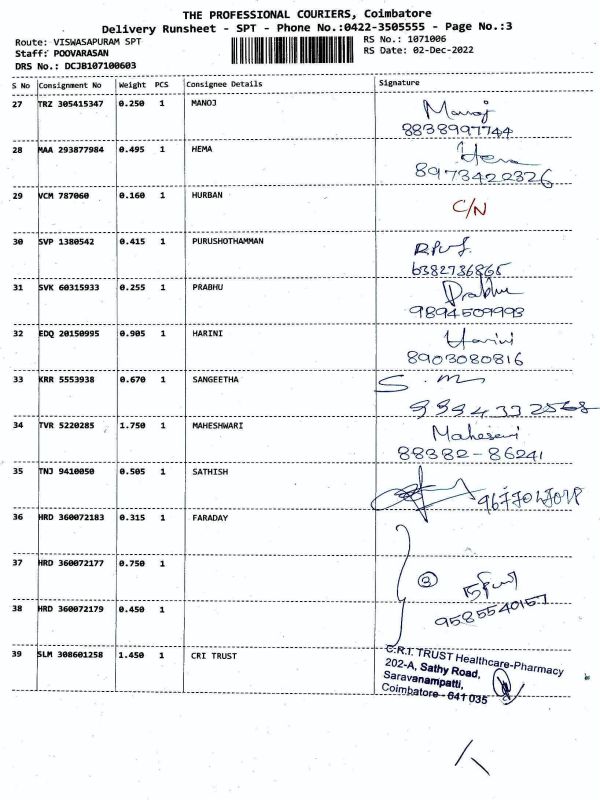 THE PROFESSIONAL COURIERS, Coimbatore
Delivery Runsheet - SPT - Phone No.:0422-3505555 - Page No.:3
Route: VISWASAPURAM SPT
RS No.: 1071006
Staff: POOVARASAN
RS Date: 02-Dec-2022
DRS No.: DCJB107100603
S No Consignment No Weight PCS Consignee Details Signature
27 TRZ 305415347 0.250 1 MANOJ Manoj
8838997744
28 MAA 293877984 0.495 1 HEMA Hema
8973422326
29 VCM 787060 0.160 1 HURBAN C/N
30 SVP 1380542 0.415 1 PURUSHOTHAMMAN
6382736865
31 SVK 60315933 0.255 1 PRABHU Prabhu
9894509993
32 EDQ 20150995 0.905 1 HARINI Harini
8903080816
33 KRR 5553938 0.670 1 SANGEETHA S. m
9994332568
34 TVR 5220285 1.750 1 MAHESHWARI
88382-86241
35 TNJ 9410050 0.505 1 SATHISH
36 HRD 360072183 0.315 1 FARADAY
37 HRD 360072177 0.750 1
3
38 HRD 360072179 0.450 1
9585540157
39 SLM 308601258 1.450 1 CRI TRUST
C.R.I. TRUST Healthcare-Pharmacy
202-A, Sathy Road,
Saravanampatti,
Coimbatore - 641 035